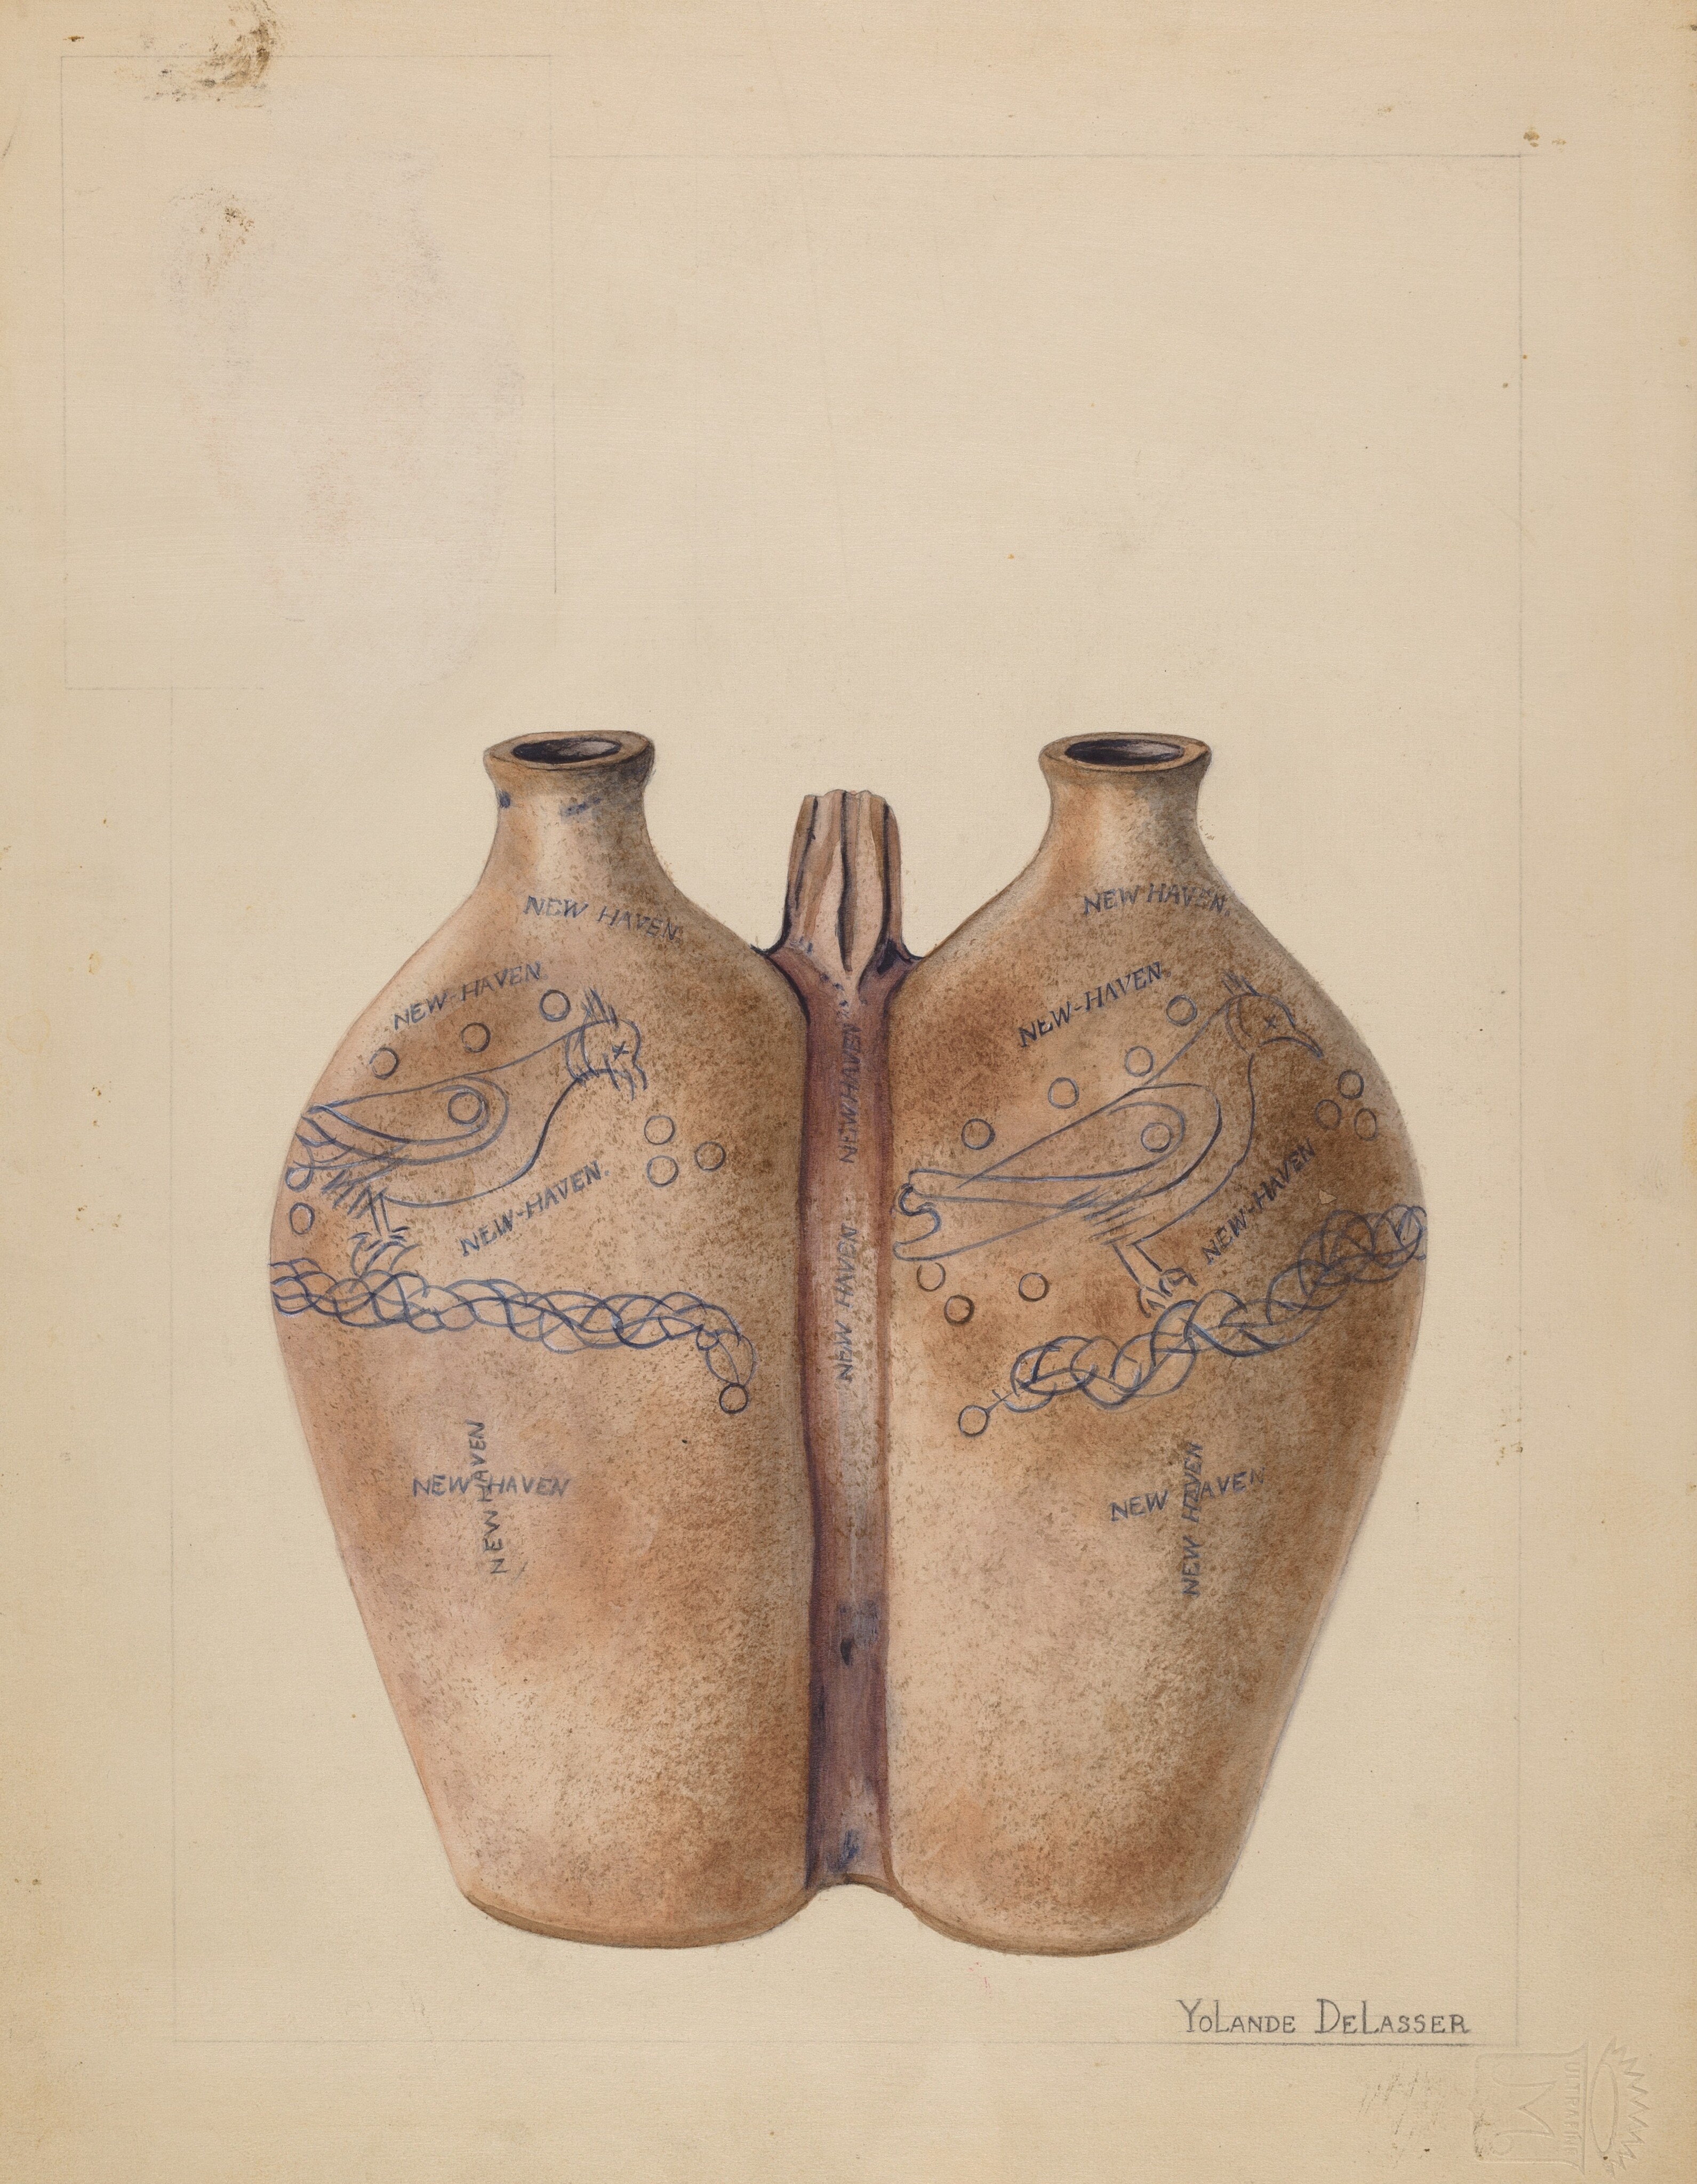 NEW HAVEN
NEW-HAVEN
NEW-HAVEN.
NEW HAVEN
NEW HAVEN
NEW HAVEN
NEW HAVEN
NEW HAVEN.
NEW-HAVEN
NEW-HAVEN
NEW HAVEN
NEW HAVEN
YOLANDE DELASSER
ULTRAFINE